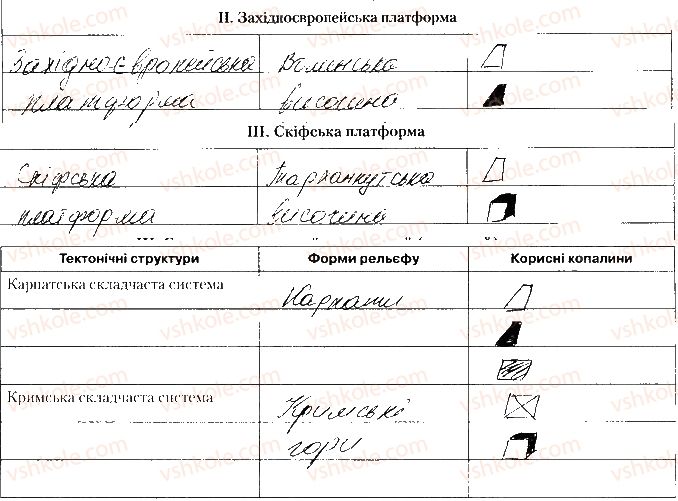 ІІ. Західноєвропейська платформа
Західноєвропейська Волинська
платформа височина
ІІІ. Скіфська платформа
Скіфська Тарханкутська
платформа височина
Тектонічні структури Форми рельєфу Корисні копалини
Карпатська складчаста система Карпати
Кримська складчаста система Кримські
гори